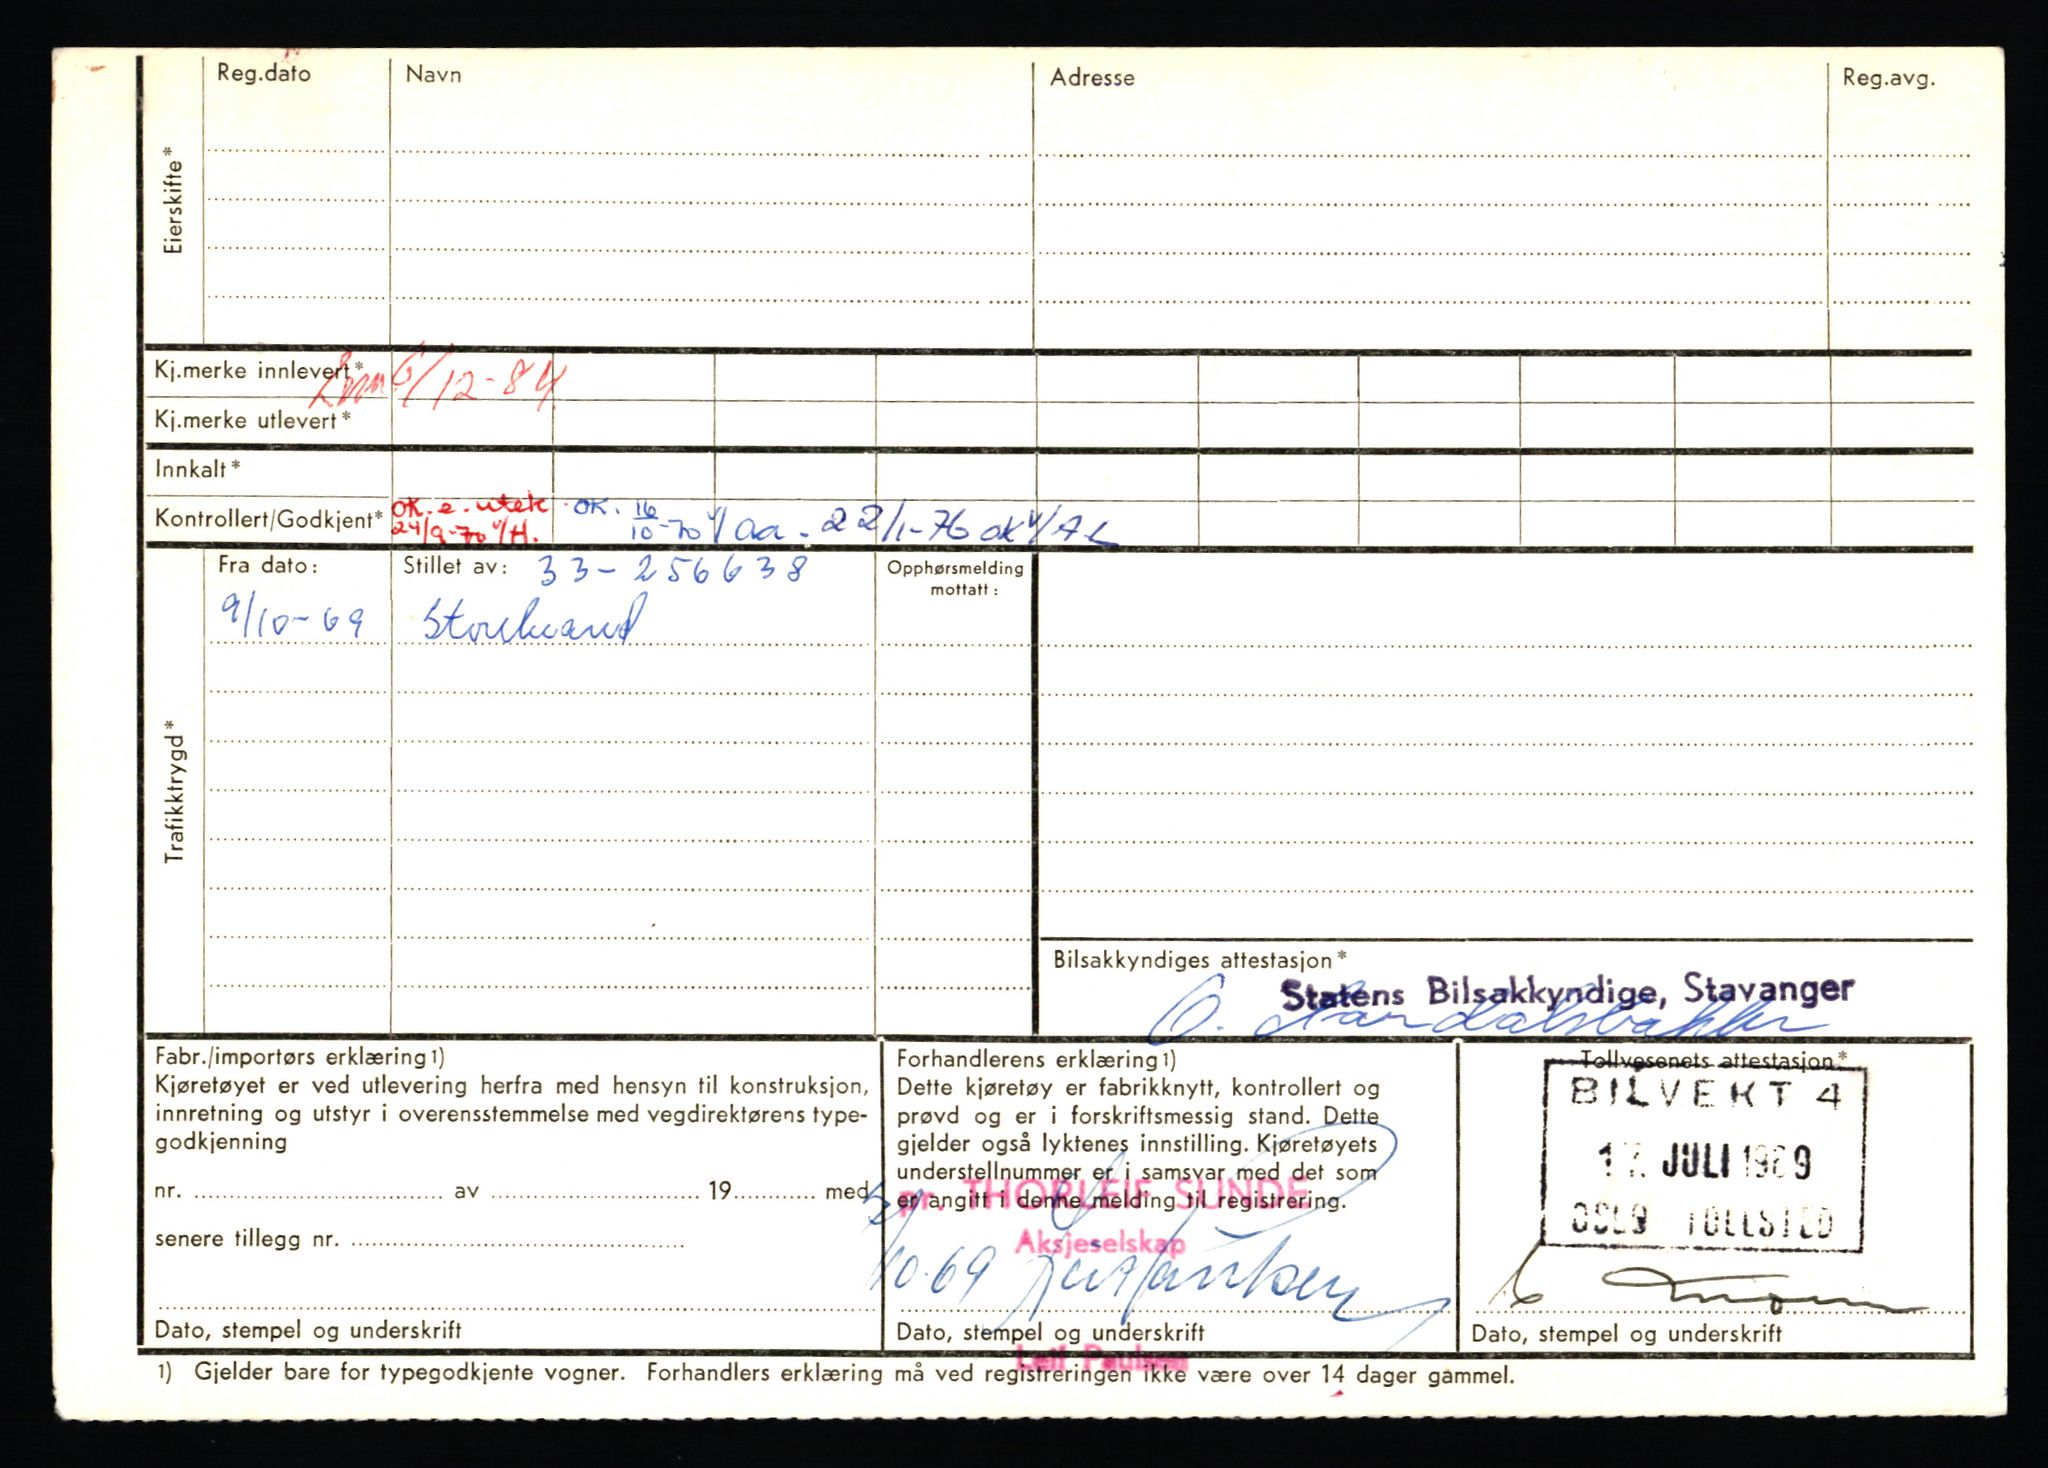 Reg.dato Navn Adresse Reg.avg.
Eierskifte*
Kj.merke innlevert* 6/12-84
Kj.merke utlevert*
Innkalt*
Kontrollert/Godkjent* OK. e. utek 24/9-70 v/H. OK. 16/10-70 v/Aa. 22/1-76 OK v/AL
Trafikktrygd*
Fra dato: Stillet av: 33-256638 Opphørsmelding mottatt:
9/10-69 Storebrand
Bilsakkyndiges attestasjon*
Statens Bilsakkyndige, Stavanger
Fabr./importørs erklæring1)
Kjøretøyet er ved utlevering herfra med hensyn til konstruksjon,
innretning og utstyr i overensstemmelse med vegdirektørens type-
godkjenning
nr. av 19 med
senere tillegg nr.
Dato, stempel og underskrift
Forhandlerens erklæring1)
Dette kjøretøy er fabrikknytt, kontrollert og
prøvd og er i forskriftsmessig stand. Dette
gjelder også lyktenes innstilling. Kjøretøyets
understellnummer er i samsvar med det som
er angitt i denne melding til registrering.
pr. THORLEIF SUNDE
Aksjeselskap
10.69 Leif Paulsen
Dato, stempel og underskrift
Leif Paulsen
Tollvesenets attestasjon*
BILVEKT 4
17. JULI 1969
OSLO TOLLSTED
Dato, stempel og underskrift
1) Gjelder bare for typegodkjente vogner. Forhandlers erklæring må ved registreringen ikke være over 14 dager gammel.